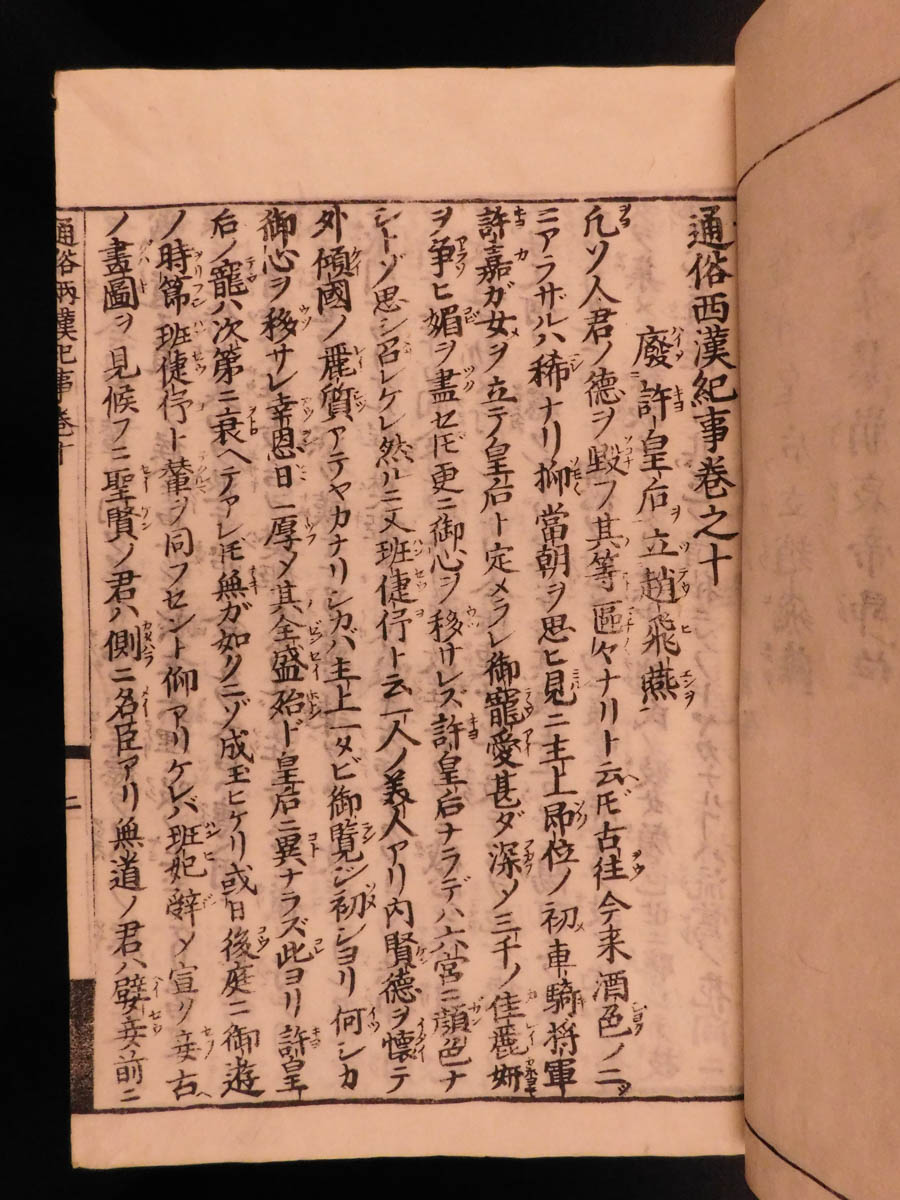 通俗西漢紀事巻之十
廢許皇后立趙飛燕
凡ソ人君ノ徳ヲ毀フ其等區々ナリト云ヘ𪜈古往今来酒色ノ二ツ
ニアラザルハ稀ナリ抑當朝ヲ思ヒ見ニ主上即位ノ初メ車騎将軍
許嘉ガ女ヲ立テ皇后ト定メラレ御寵愛甚ダ深メ三千ノ佳麗妍
ヲ争ヒ媚ヲ盡セ𪜈更ニ御心ヲ移サレズ許皇后ナラデハ六宮ニ顔色ナ
シトゾ思シ召レケレ然ルニ又班倢伃ト云一人ノ美人アリ内賢徳ヲ懐テ
外傾國ノ麗質アテヤカナリシカバ主上一タビ御覧ジ初シヨリ何シカ
御心ヲ移サレ幸恩日ニ厚メ其全盛殆ド皇后ニ異ナラズ此ヨリ許皇
后ノ寵ハ次第ニ衰ヘテアレ𪜈無ガ如クニゾ成玉ヒケリ或日後庭ニ御遊
ノ時節班倢伃ト輦ヲ同フセント仰アリケレバ班妃辞メ宣ク妾古ヘ
ノ畫圖ヲ見候フニ聖賢ノ君ハ側ニ名臣アリ無道ノ君ハ嬖妾前ニ
通俗西漢紀事 巻十